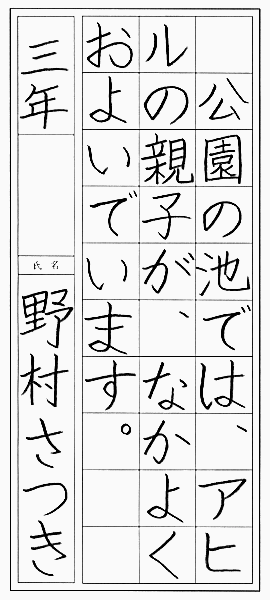 公園の池では、アヒ
ルの親子が、なかよく
およいでいます。
三年
氏名
野村さつき